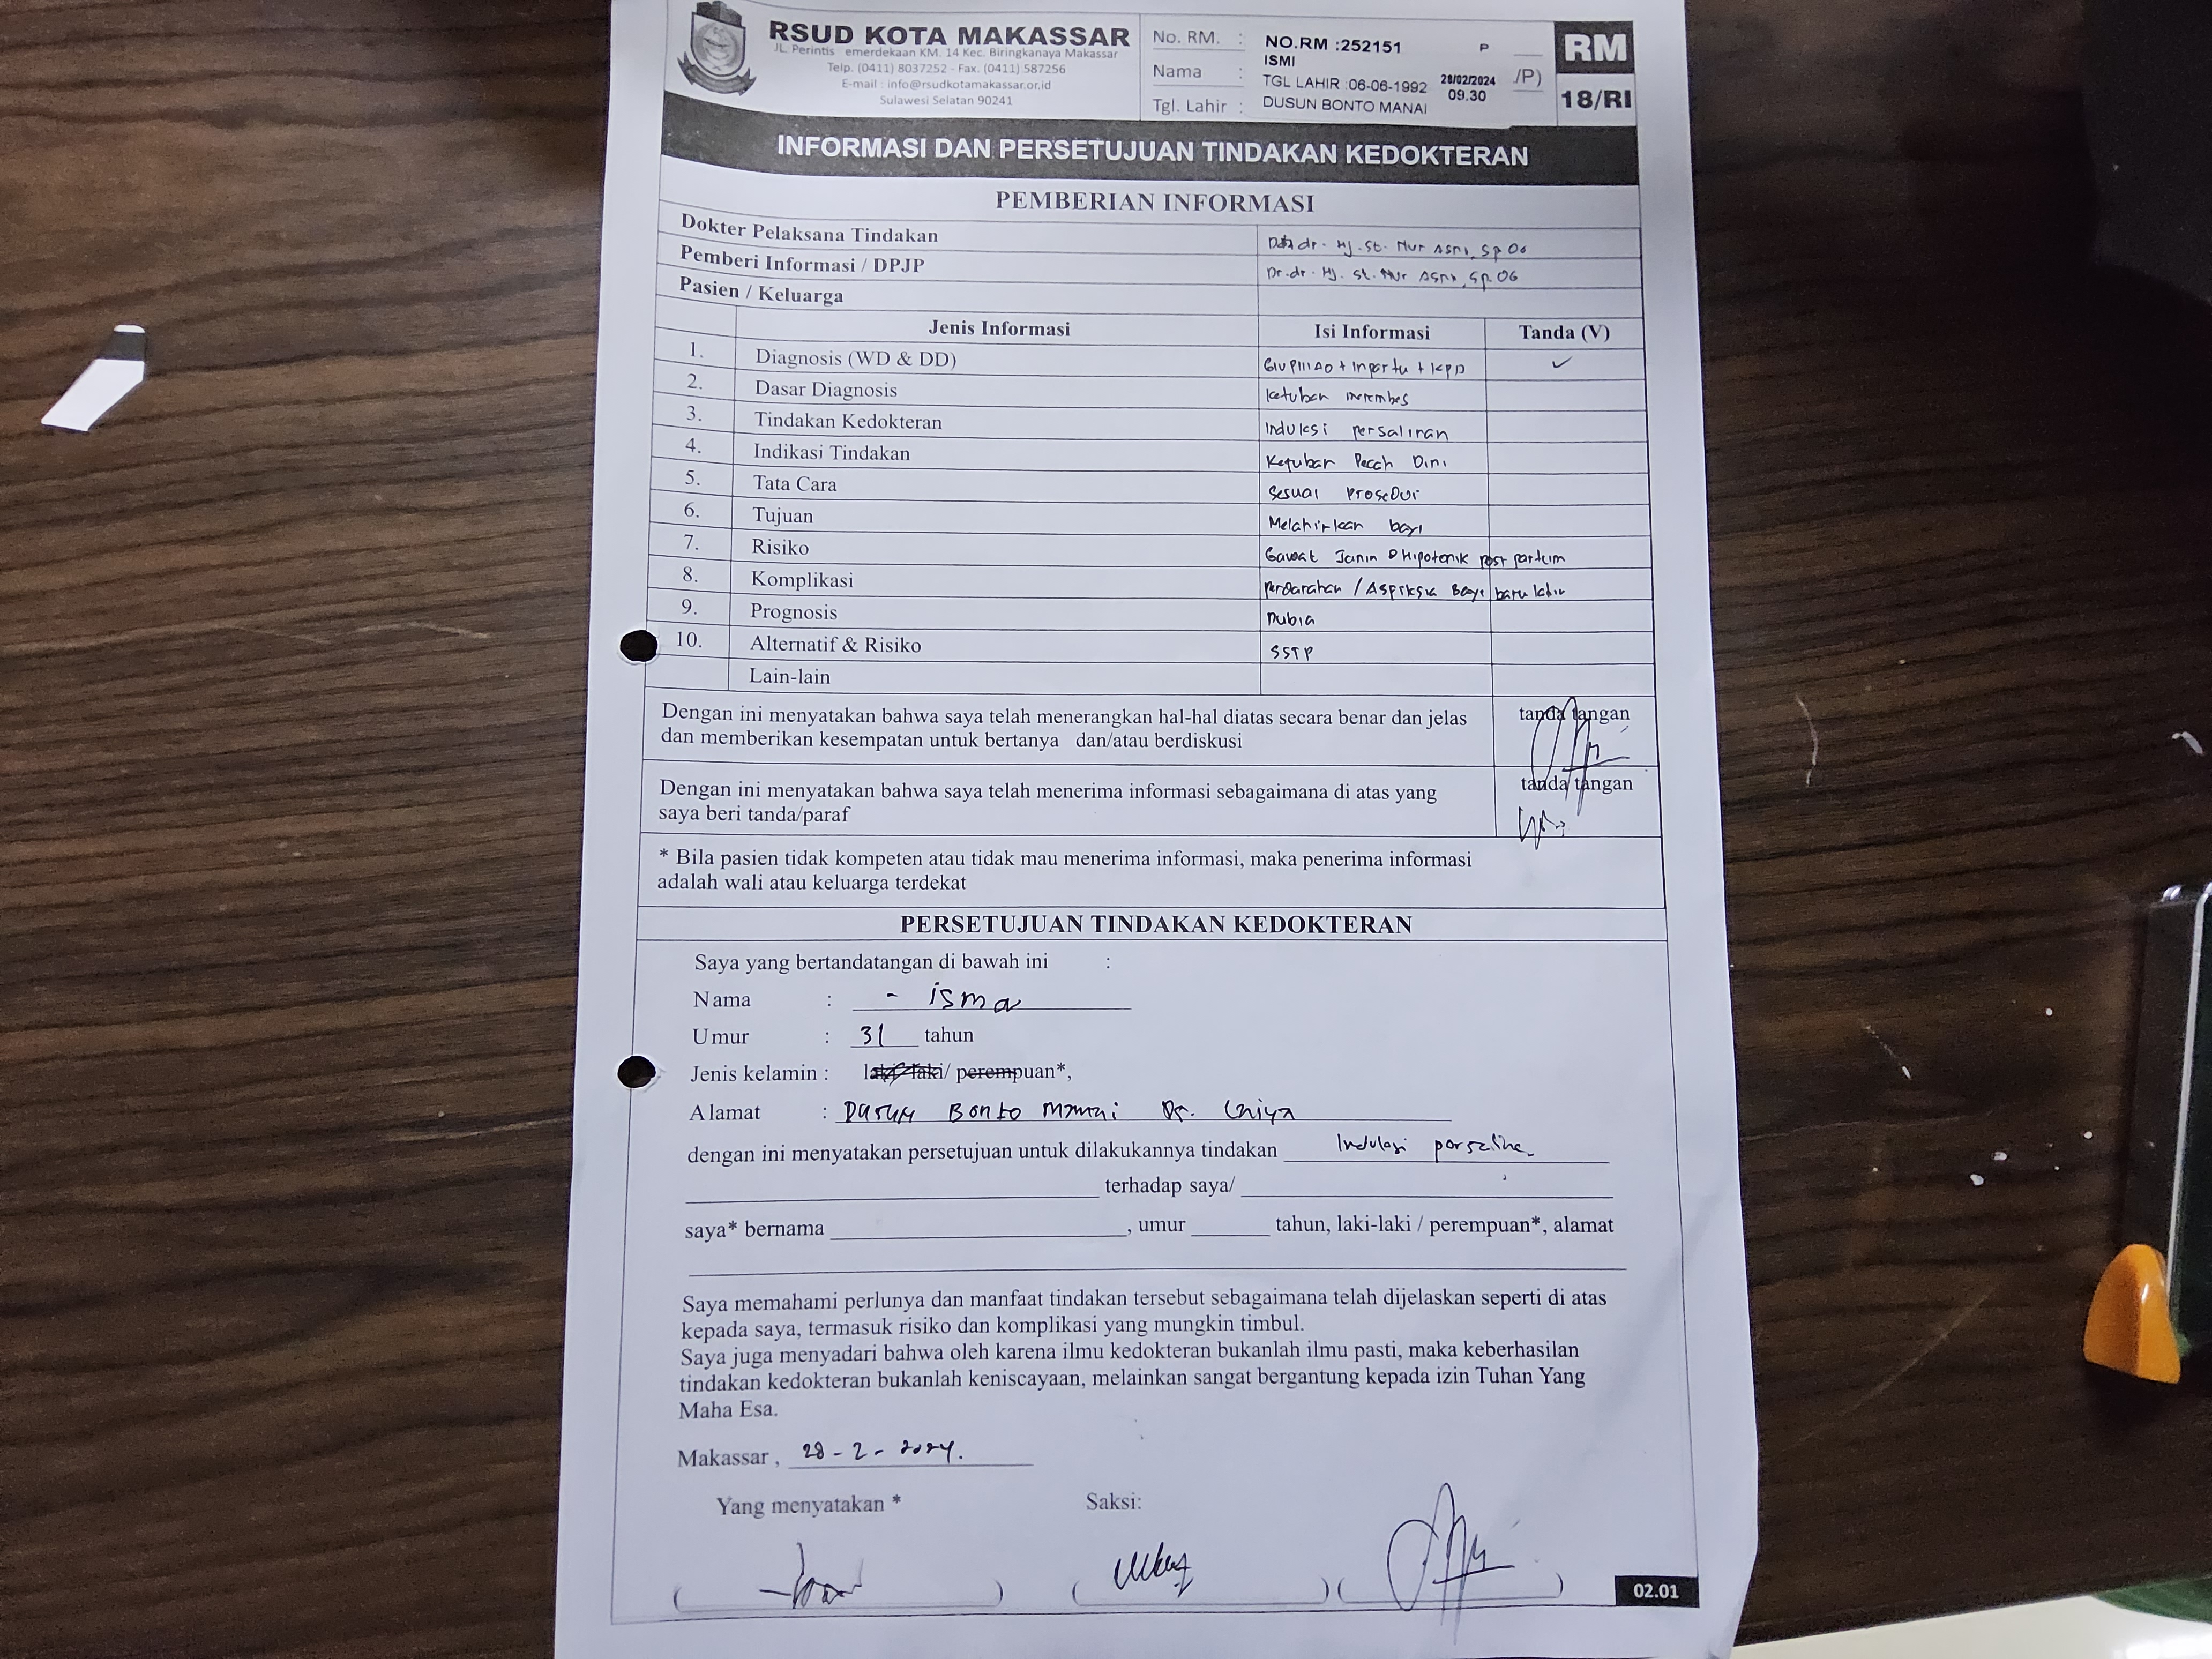 RSUD KOTA MAKASSAR
JL. Perintis emerdekaan KM. 14 Kec. Biringkanaya Makassar
Telp. (0411) 8037252 - Fax. (0411) 587256
E-mail : info@rsudkotamakassar.or.id
Sulawesi Selatan 90241
No. RM. : NO.RM :252151 P
Nama : ISMI /P)
TGL LAHIR :06-06-1992 28/02/2024 09.30
Tgl. Lahir : DUSUN BONTO MANAI
RM
18/RI
INFORMASI DAN PERSETUJUAN TINDAKAN KEDOKTERAN
PEMBERIAN INFORMASI
Dokter Pelaksana Tindakan dr. Hj. St. Nur Asni, Sp OG
Pemberi Informasi / DPJP Dr. dr. Hj. St. Nur Asni, Sp. OG
Pasien / Keluarga
Jenis Informasi Isi Informasi Tanda (V)
1. Diagnosis (WD & DD) GIVPIIIA0 + Inpartu + KPD ✓
2. Dasar Diagnosis Ketuban merembes
3. Tindakan Kedokteran Induksi persalinan
4. Indikasi Tindakan Ketuban Pecah Dini
5. Tata Cara Sesuai Prosedur
6. Tujuan Melahirkan bayi
7. Risiko Gawat Janin Hipotonik post partum
8. Komplikasi Perdarahan / Aspiksia Bayi baru lahir
9. Prognosis Dubia
10. Alternatif & Risiko SSTP
Lain-lain
Dengan ini menyatakan bahwa saya telah menerangkan hal-hal diatas secara benar dan jelas tanda tangan
dan memberikan kesempatan untuk bertanya dan/atau berdiskusi
Dengan ini menyatakan bahwa saya telah menerima informasi sebagaimana di atas yang tanda tangan
saya beri tanda/paraf
* Bila pasien tidak kompeten atau tidak mau menerima informasi, maka penerima informasi
adalah wali atau keluarga terdekat
PERSETUJUAN TINDAKAN KEDOKTERAN
Saya yang bertandatangan di bawah ini :
Nama : - isma
Umur : 31 tahun
Jenis kelamin : laki-laki/ perempuan*,
Alamat : Dusun Bonto Manai
dengan ini menyatakan persetujuan untuk dilakukannya tindakan Induksi
terhadap saya/
saya* bernama , umur tahun, laki-laki / perempuan*, alamat
Saya memahami perlunya dan manfaat tindakan tersebut sebagaimana telah dijelaskan seperti di atas
kepada saya, termasuk risiko dan komplikasi yang mungkin timbul.
Saya juga menyadari bahwa oleh karena ilmu kedokteran bukanlah ilmu pasti, maka keberhasilan
tindakan kedokteran bukanlah keniscayaan, melainkan sangat bergantung kepada izin Tuhan Yang
Maha Esa.
Makassar , 28 - 2 - 2024.
Yang menyatakan * Saksi:
( ) ( ) ( )
02.01